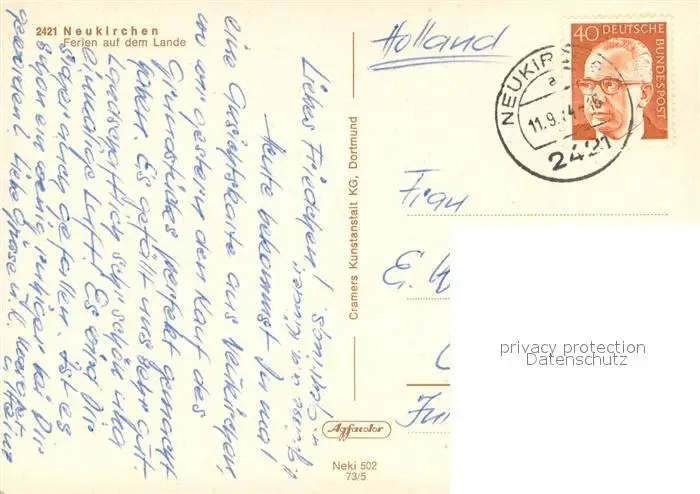 2421 Neukirchen
Ferien auf dem Lande
Holland
40 DEUTSCHE BUNDESPOST
NEUKIR
a
11.9.74-16
2421
Liebes Friedchen!
Heute bekommst Du mal
eine Ansichtskarte aus Neukirchen,
wo wir gestern den Kauf des
Grundstückes perfekt gemacht
haben. Es gefällt uns sehr gut.
Landschaftlich sehr schön und
einmalige Luft! Es wird Dir
sicherlich gefallen. Ist es
schon ein wenig ruhiger bei Dir
geworden? Liebe Grüsse
Cramers Kunstanstalt KG, Dortmund
Agfacolor
Neki 502
73/5
Frau
E.
privacy protection
Datenschutz